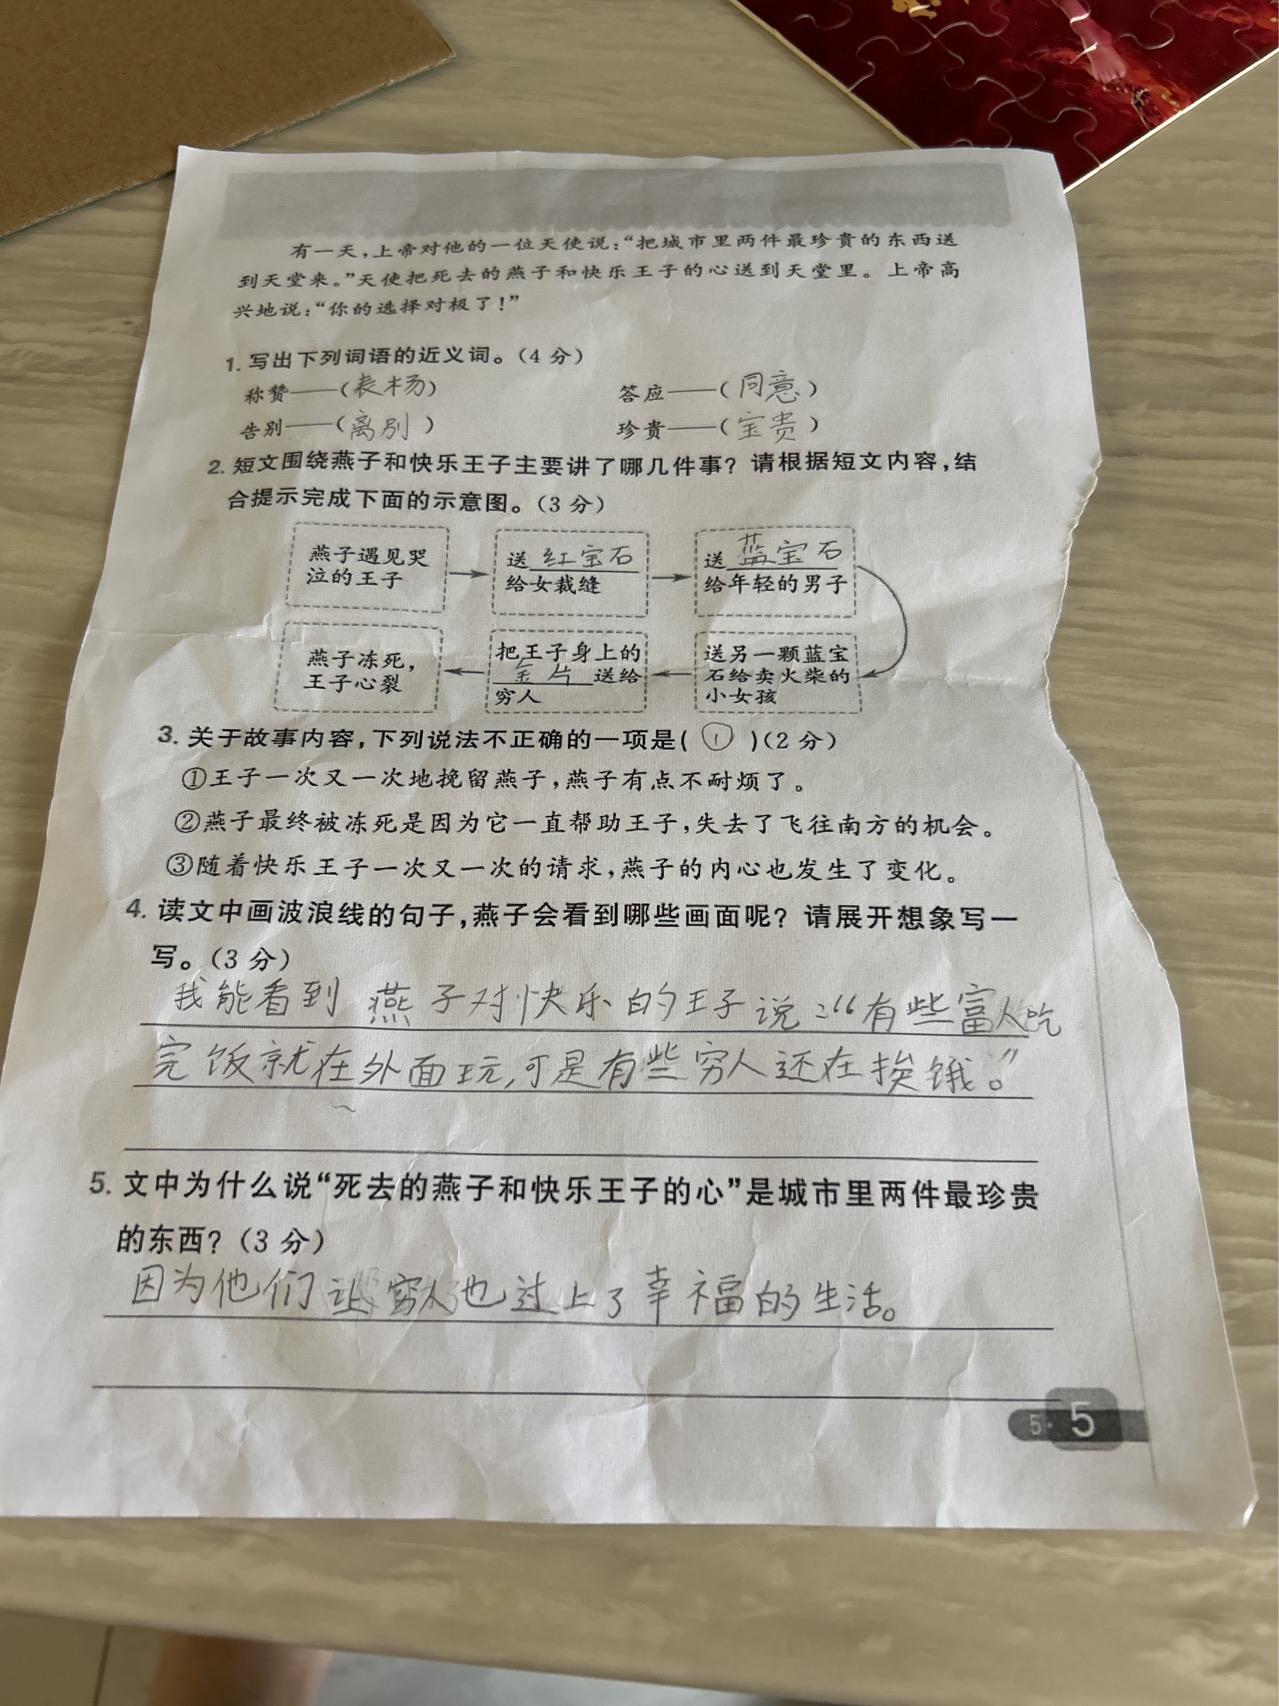 有一天，上帝对他的一位天使说：“把城市里两件最珍贵的东西送
到天堂来。”天使把死去的燕子和快乐王子的心送到天堂里。上帝高
兴地说：“你的选择对极了！”
1. 写出下列词语的近义词。（4 分）
称赞——（表杨） 答应——（同意）
告别——（离别） 珍贵——（宝贵）
2. 短文围绕燕子和快乐王子主要讲了哪几件事？请根据短文内容，结
合提示完成下面的示意图。（3 分）
燕子遇见哭
泣的王子
送红宝石
给女裁缝
送蓝宝石
给年轻的男子
送另一颗蓝宝
石给卖火柴的
小女孩
把王子身上的
金片送给
穷人
燕子冻死，
王子心裂
3. 关于故事内容，下列说法不正确的一项是（①）（2 分）
①王子一次又一次地挽留燕子，燕子有点不耐烦了。
②燕子最终被冻死是因为它一直帮助王子，失去了飞往南方的机会。
③随着快乐王子一次又一次的请求，燕子的内心也发生了变化。
4. 读文中画波浪线的句子，燕子会看到哪些画面呢？请展开想象写一
写。（3 分）
我能看到燕子对快乐的王子说：“有些富人吃
完饭就在外面玩，可是有些穷人还在挨饿。”
5. 文中为什么说“死去的燕子和快乐王子的心”是城市里两件最珍贵
的东西？（3 分）
因为他们让穷人也过上了幸福的生活。
5·5